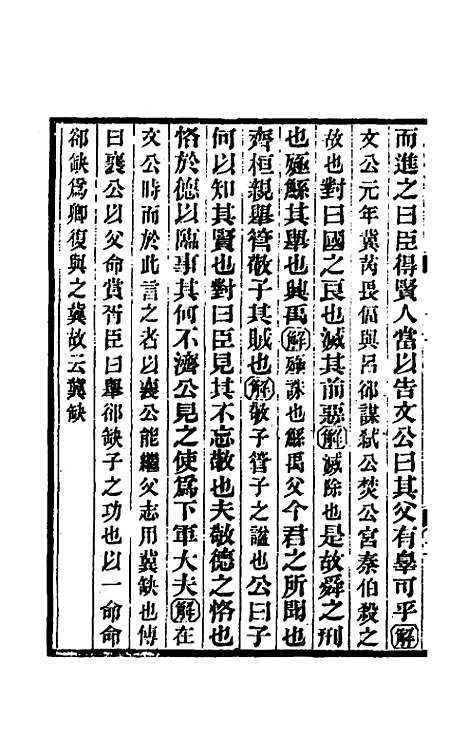 而進之曰臣得賢人當以告文公曰其父有辠可乎解
文公元年冀芮畏偪與呂郤謀弒公焚公宮秦伯殺之
故也對曰國之良也滅其前惡解滅除也是故舜之刑
也殛鯀其舉也興禹解殛誅也鯀禹父今君之所聞也
齊桓親舉管敬子其賊也解敬子管子之謚也公曰子
何以知其賢也對曰臣見其不忘敬也夫敬德之恪也
恪於德以臨事其何不濟公見之使爲下軍大夫解在
文公時而於此言之者以襄公能繼父志用冀缺也傳
曰襄公以父命賞胥臣曰舉郤缺子之功也以一命命
郤缺爲卿復與之冀故云冀缺